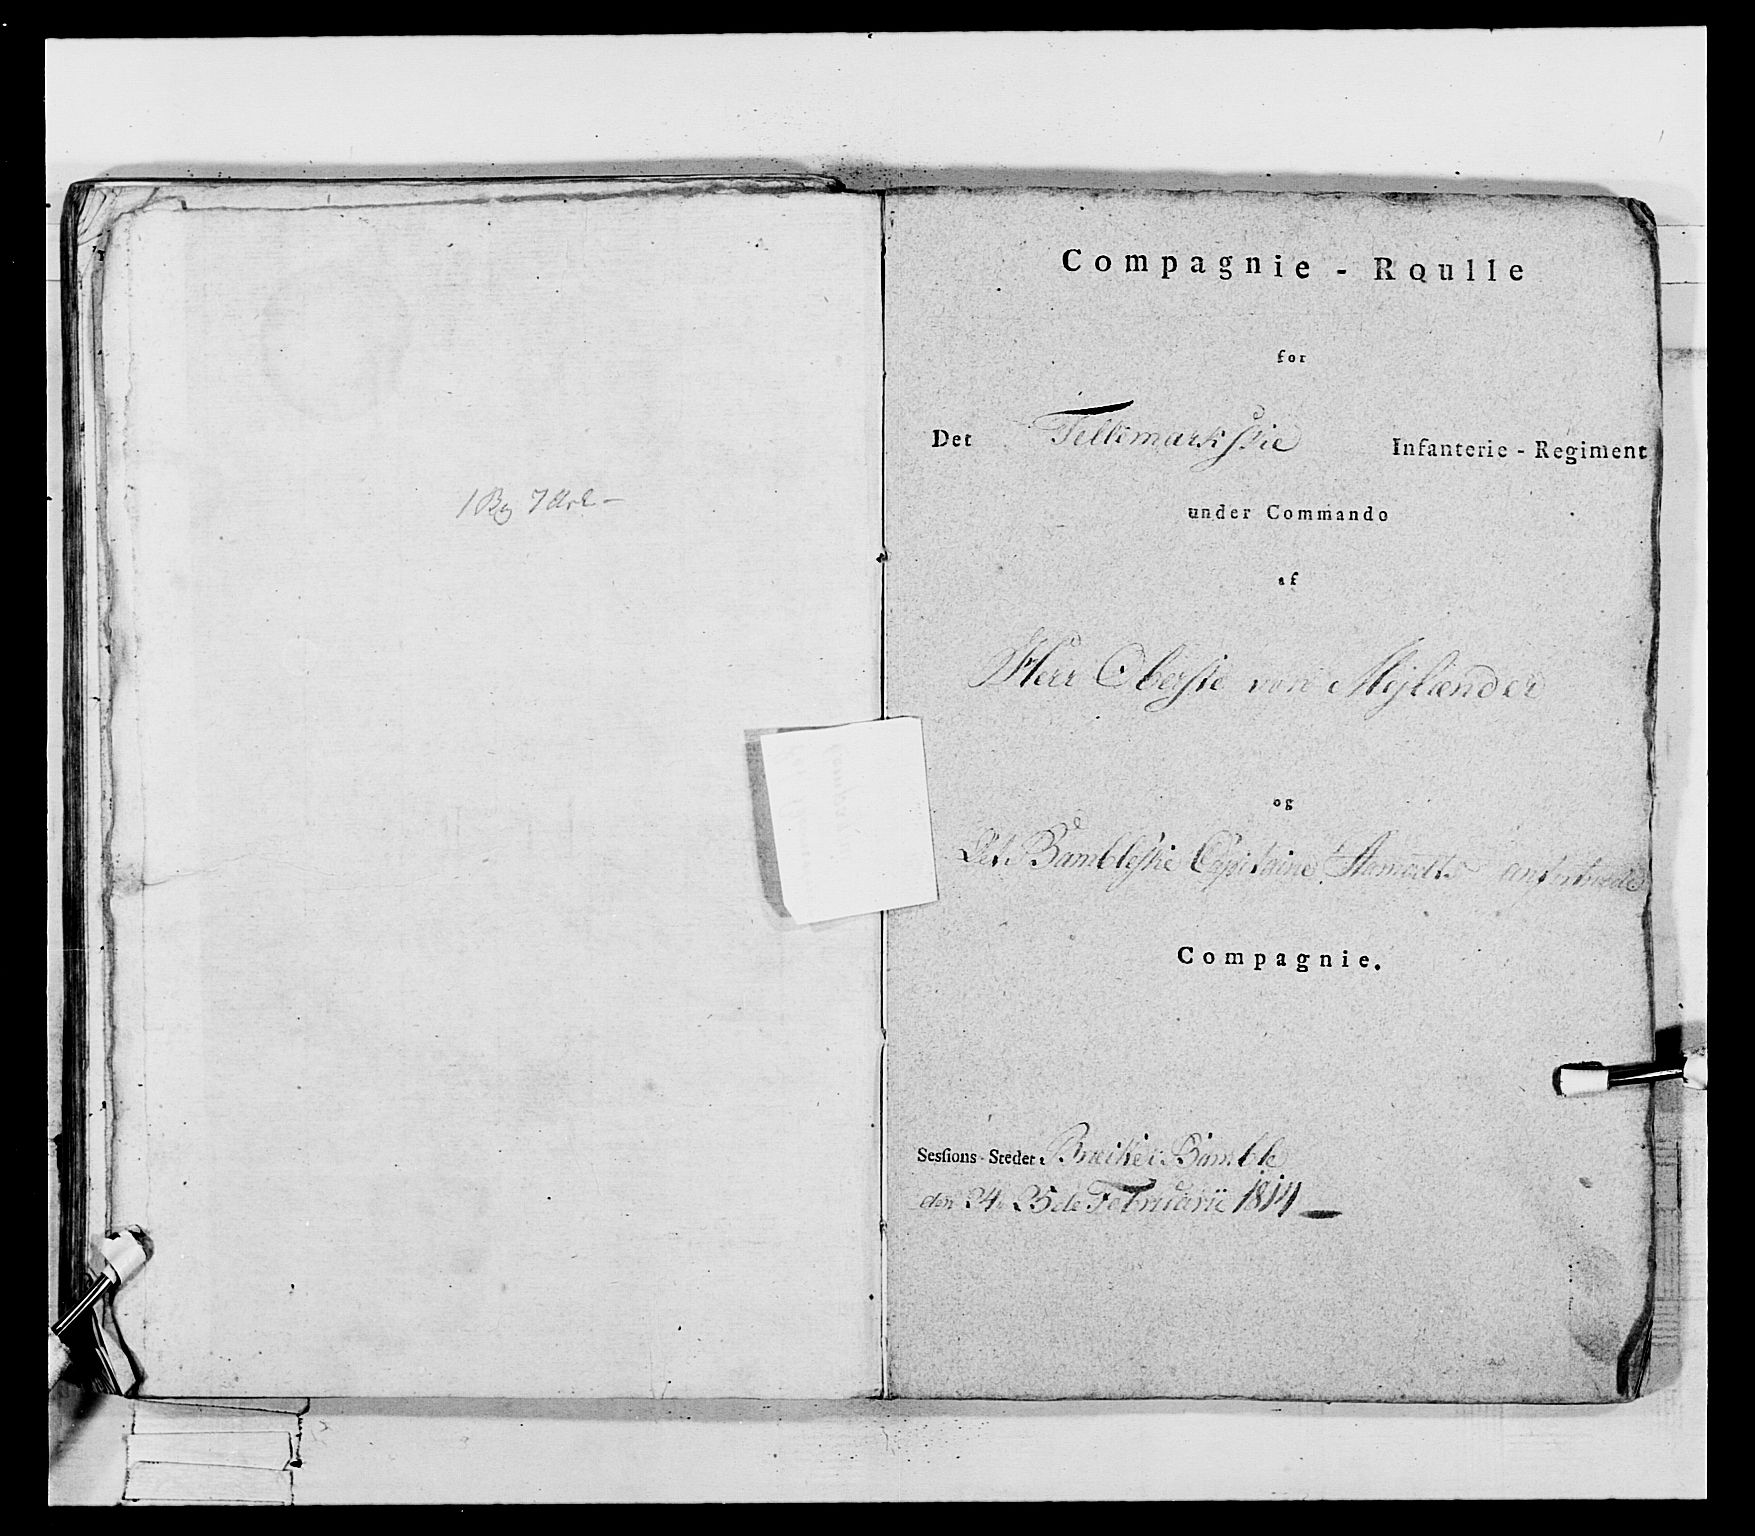 1 Bg 7 Ark –
Compagnie - Roulle
for
Det Tellemarkske Infanterie - Regiment
under Commando
af
Herr Oberste von Mejlænder
og
Det Bambleske Capitaine anfortroede
Compagnie.
Sessions-Stedet. Bræcke i Bamble
den 24 25de Februarii 1814